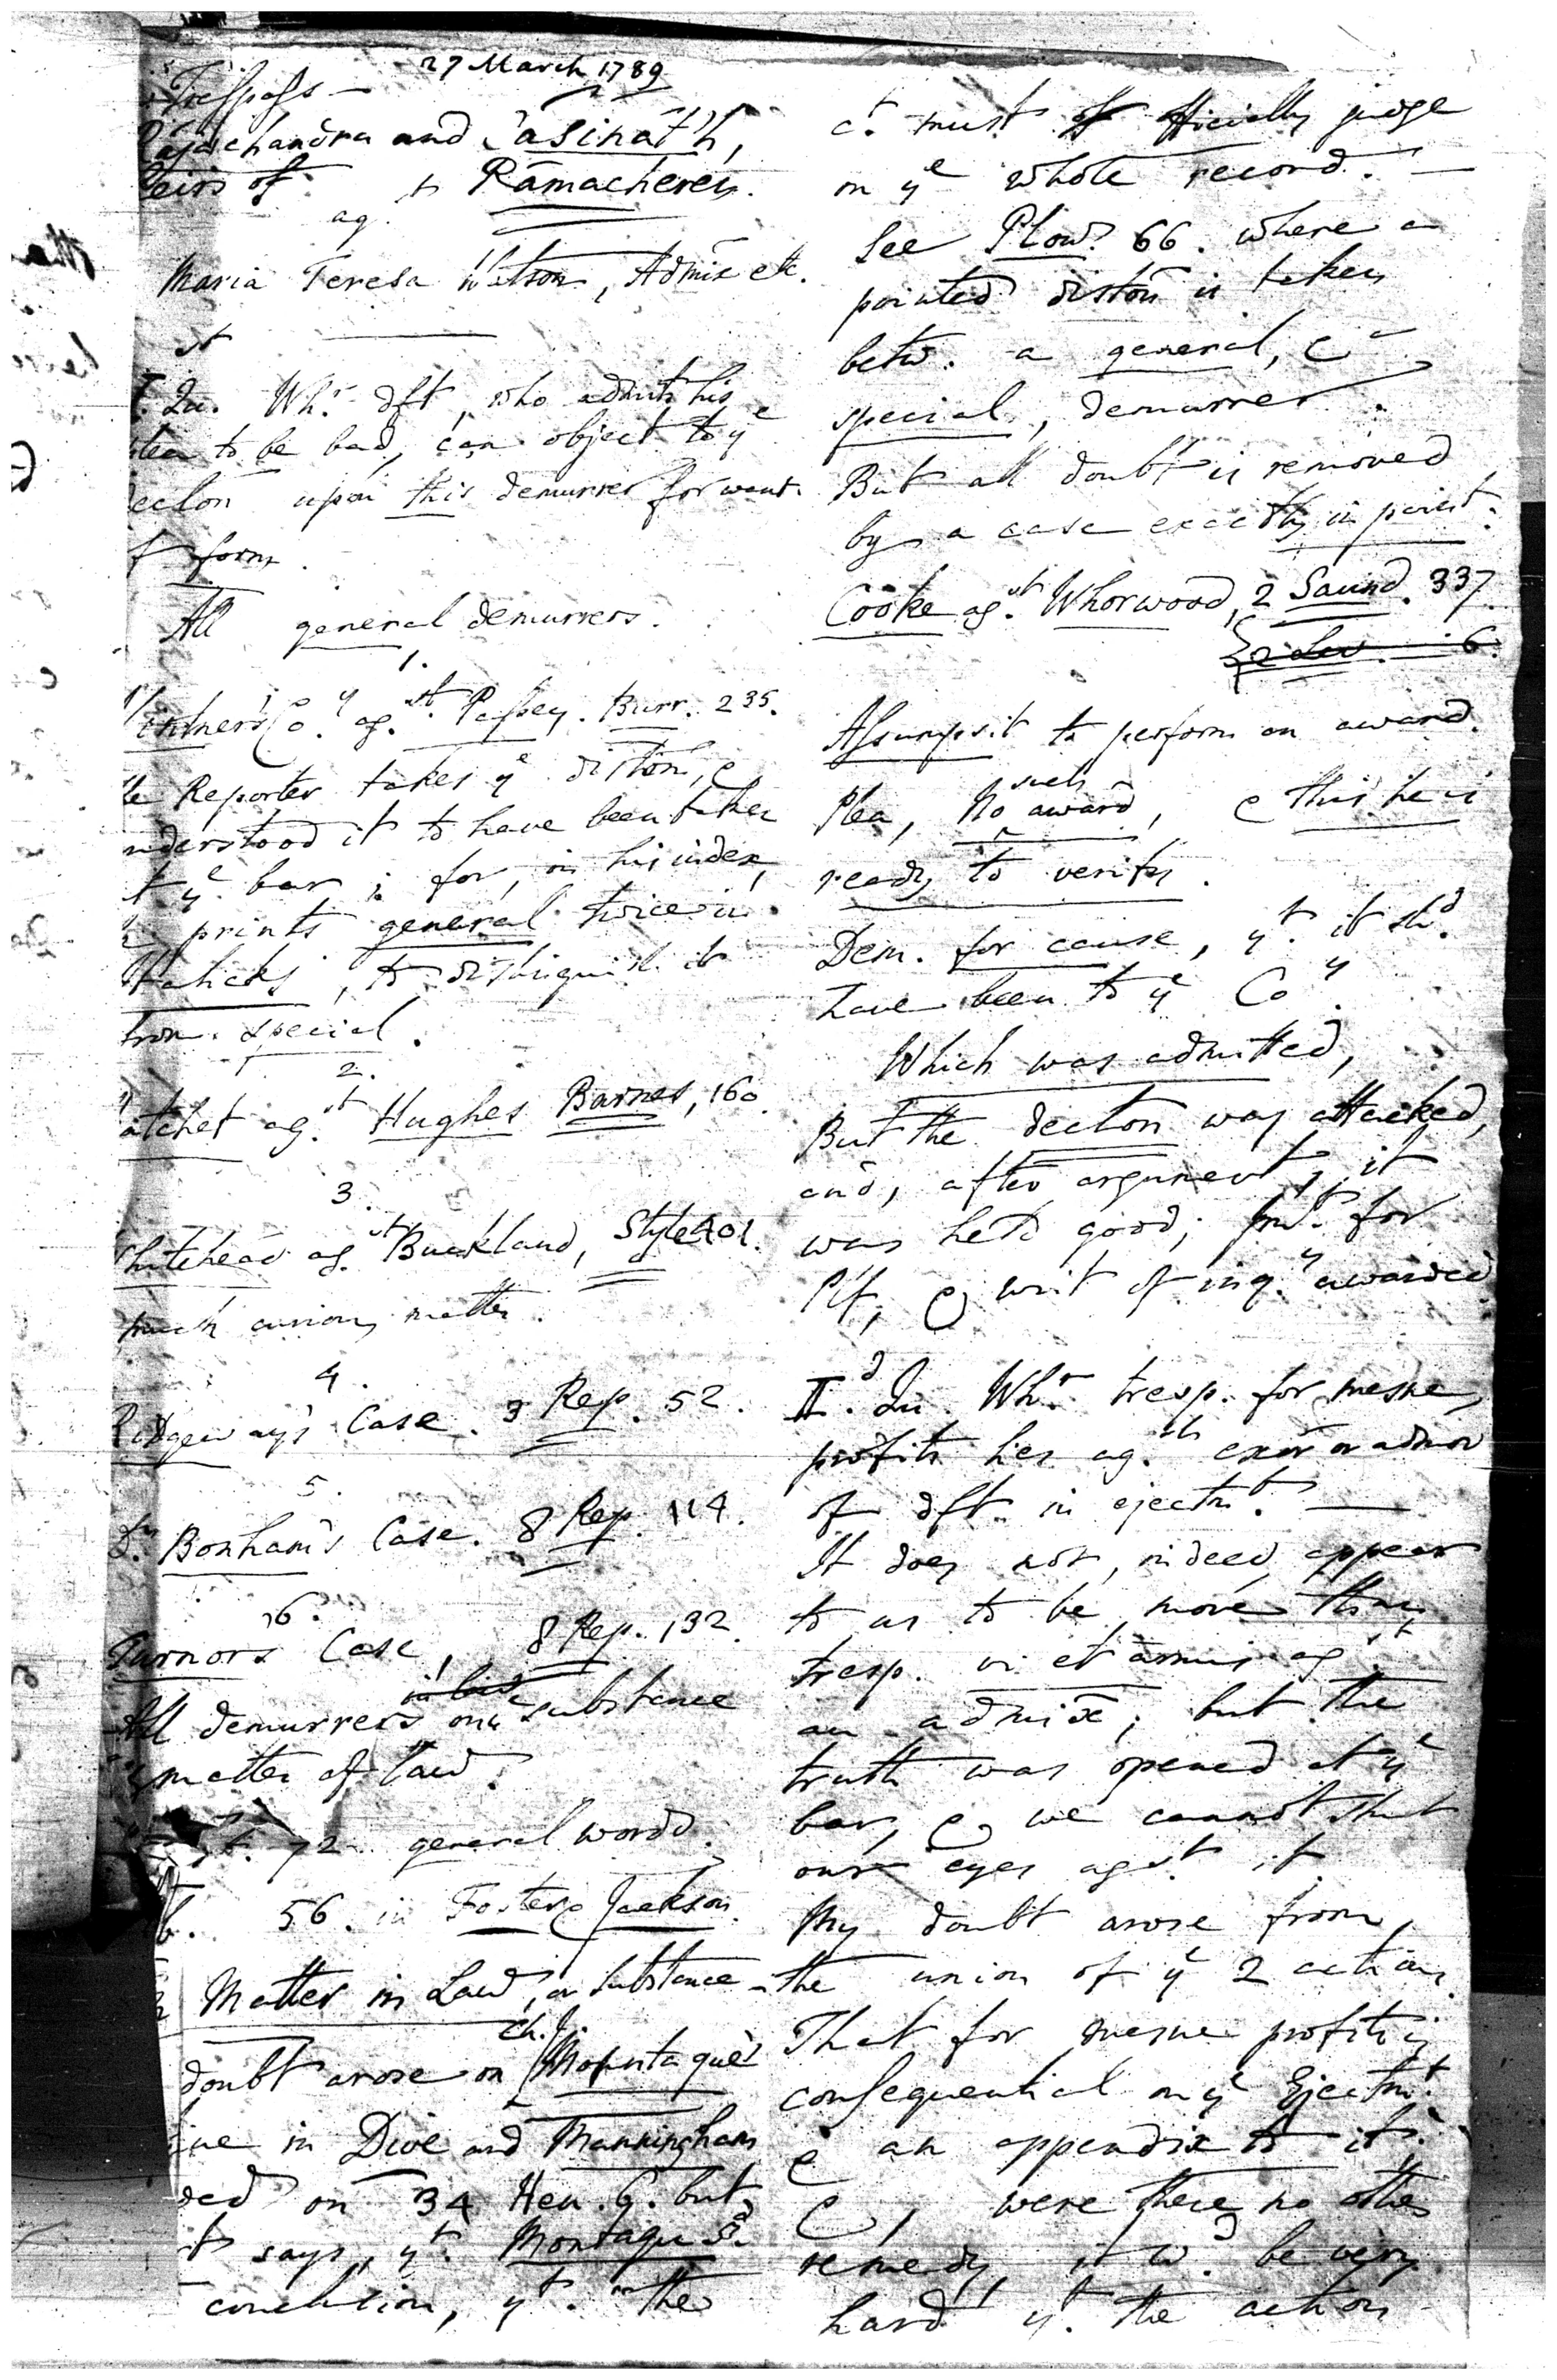 27 March 1789
Trespass —
Rājachandra and Casināt'h,
heirs of Rāmacheren.
ag.
Maria Teresa Watson, Admix etc.
I. Qu. Whr. dft, who admits his
plea to be bad, can object to ye
declon upon this demurrer for want
of form.
All general demurrers.
1.
Vintner's Coy. agst. Passey. Burr. 235.
The Reporter takes ye diston, &
understood it to have been taken
at ye bar; for, in his index,
he prints general twice in
Italicks, to distinguish it
from special.
2.
Hatchet agst. Hughes Barnes, 160.
3.
Whitehead agst. Buckland, Style 401.
much curious matter.
4.
Ridgeway's Case. 3 Rep. 52.
5.
Dr. Bonham's Case. 8 Rep. 114.
6.
Turnor's Case, 8 Rep. 132.
All demurrers on substance
matter of law.
72 general words.
56. in Foster & Jackson.
Matter in Law, or substance
doubt arose on Ch. J. Montague's
in Dive and Manningham
34 Hen. 6. but
says, yt. Montague Sd.
conclusion, yt. "the
ct. must officially judge
on ye whole record. —
See Plowd. 66. where a
pointed diston is taken
betw. a general, &
special, demurrer.
But all doubt is removed
by a case exactly in point.
Cooke agst. Whorwood, 2 Saund. 337.
2 Lev. 6.
Assumpsit to perform an award.
Plea, No such award, & this he is
ready to verify.
Dem. for cause, yt. it shd.
have been to ye Coy.
Which was admitted,
But the declon was attacked,
and, after argument, it
was held good; jmt. for
Plf, & writ of inqy. awarded.
IId. Qu. Whr. tresp. for mesne
profits lies agst. exor or admor
of dft. in ejectmt. —
It does not, indeed, appear
to us to be more than
tresp. vi et armis agst.
an admix; but the
truth was opened at ye
bar, & we cannot shut
our eyes agst. it.
My doubt arose from
the union of ye 2 actions.
That for mesne profits is
consequential on ye Ejectmt.
& an appendix to it.
&, were there no other
remedy, it wd. be very
hard yt. the action